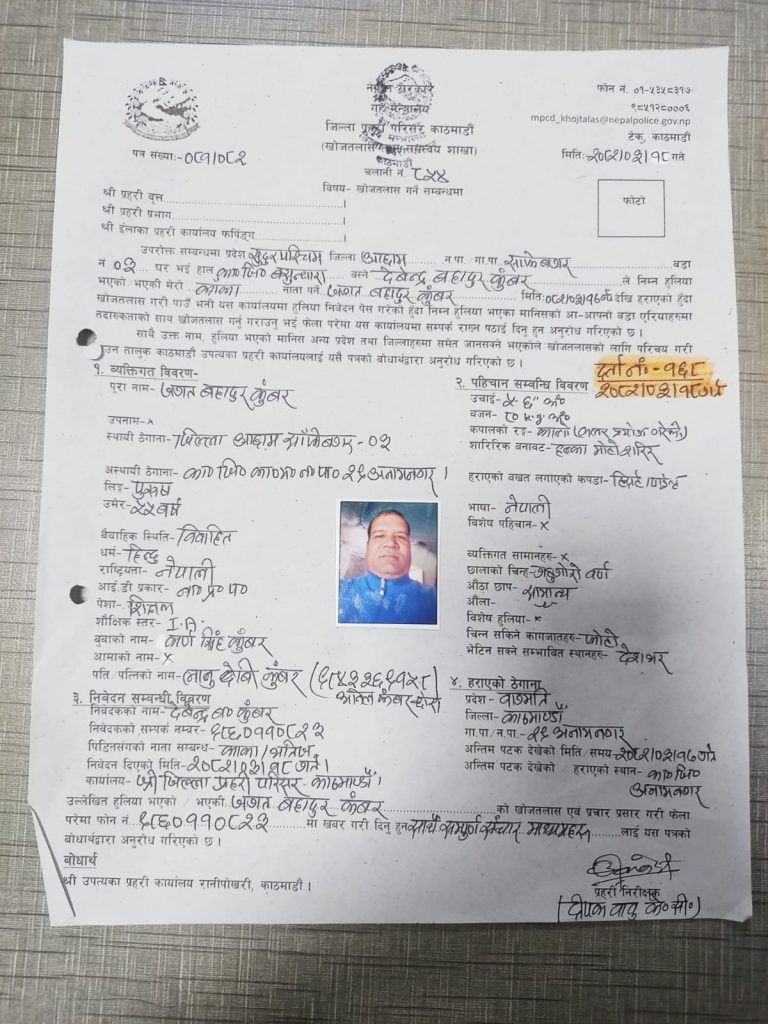 फोन नं. ०१-५३५८३१७
९८५१२८०००६
mpcd_khojtalas@nepalpolice.gov.np
टेकु, काठमाडौं
नेपाल सरकार
गृह मन्त्रालय
जिल्ला प्रहरी परिसर काठमाडौं
(खोजतलास समन्वय शाखा)
काठमाडौं
पत्र संख्याः-०८१/०८२
चलानी नं. ८५४
मितिः २०८२/०३/१८ गते
विषय- खोजतलास गर्ने सम्बन्धमा
श्री प्रहरी वृत्त
श्री प्रहरी प्रभाग
श्री ईलाका प्रहरी कार्यालय फर्पिङ्ग
फोटो
उपरोक्त सम्बन्धमा प्रदेश सुदुरपश्चिम जिल्ला अछाम न.पा./गा.पा. साफेबगर वडा
नं ०३ घर भई हाल का०जि० बसुन्धारा बस्ने देबेन्द्र बहादुर कुंवर ले निम्न हुलिया
भएको भएकी मेरो काका नाता पर्ने जगत बहादुर कुंबर मितिः २०८२/०३/१७ गते देखि हराएको हुँदा
खोजतलास गरी पाउँ भनी यस कार्यालयमा हुलिया निवेदन पेस गरेको हुँदा निम्न हुलिया भएका मानिसको आ-आफ्नो वडा एरियाहरुमा
तदारुकताको साथ खोजतलास गर्नु गराउनु भई फेला परेमा यस कार्यालयमा सम्पर्क राख्न पठाई दिनु हुन अनुरोध गरिएको छ ।
साथै उक्त नाम, हुलिया भएको मानिस अन्य प्रदेश तथा जिल्लाहरुमा समेत जानसक्ने भएकोले खोजतलासको लागि परिचय गरी
उन तालुक काठमाडौं उपत्यका प्रहरी कार्यालयलाई यसै पत्रको बोधार्थद्वारा अनुरोध गरिएको छ ।
दर्ता नं- १६८
२०८२/०३/१८ गते
१. व्यक्तिगत विवरण-
पूरा नाम- जगत बहादुर कुंबर
उपनाम- x
स्थायी ठेगाना- जिल्ला अछाम साँफेबगर - ०३
अस्थायी ठेगाना- का०जि० का०म०न०पा० २९ अनामनगर ।
लिङ्ग- पुरुष
उमेर- ५५ बर्ष
वैवाहिक स्थिति- विवाहित
धर्म- हिन्दु
राष्ट्रियता- नेपाली
आई.डी प्रकार- ना०प्र०प०
पेशा- शिक्षक
शैक्षिक स्तर- I.A.
बुवाको नाम- कर्ण सिंह कुंबर
आमाको नाम- x
पति/पत्निको नाम- नानु देबि कुंबर
२. पहिचान सम्बन्धि विवरण
उचाई- ५.६" अं०
वजन- ८० k.g. अं०
कपालको रङ्ग- कालो
शारिरिक बनावट- हल्का मोटो शरिर
हराएको बखत लगाएको कपडा- टिसर्ट/पाईन्ट
भाषा- नेपाली
विशेष पहिचान- x
व्यक्तिगत सामानहरु- x
छालाको चिन्ह- गहुगोरो वर्ण
औंठा छाप- सामान्य
औंला-
विशेष हुलिया- x
चिन्न सकिने कागजातहरु- फोटो
भेटिन सक्ने सम्भावित स्थानहरु- देशभर
३. निवेदन सम्बन्धी विवरण
निवेदकको नाम- देबेन्द्र ब० कुंबर
निवेदकको सम्पर्क नम्बर- ९८६०११०८२३
पिडितसंगको नाता सम्बन्ध- काका/भतिज
निवेदन दिएको मिति- २०८२/०३/१८ गते ।
कार्यालय- श्री जिल्ला प्रहरी परिसर- काठमाण्डौं ।
४. हराएको ठेगाना
प्रदेश- बागमति
जिल्ला- काठमाण्डौं
गा.पा/न.पा.- २९ अनामनगर
अन्तिम पटक देखेको मिति/समय- २०८२/०३/१७ गते
अन्तिम पटक देखेको/हराएको स्थान- का०जि०
अनामनगर
उल्लेखित हुलिया भएको/भएकी जगत बहादुर कुंबर को खोजतलास एवं प्रचार प्रसार गरी फेला
परेमा फोन नं. ९८६०११०८२३ मा खबर गरी दिनु हुन साथै सम्पुर्ण संचार माध्यमहरु लाई यस पत्रको
बोधार्थद्वारा अनुरोध गरिएको छ ।
बोधार्थ
श्री उपत्यका प्रहरी कार्यालय रानीपोखरी, काठमाडौं ।
प्रहरी निरीक्षक
(दीपक बाबु के०सी०)